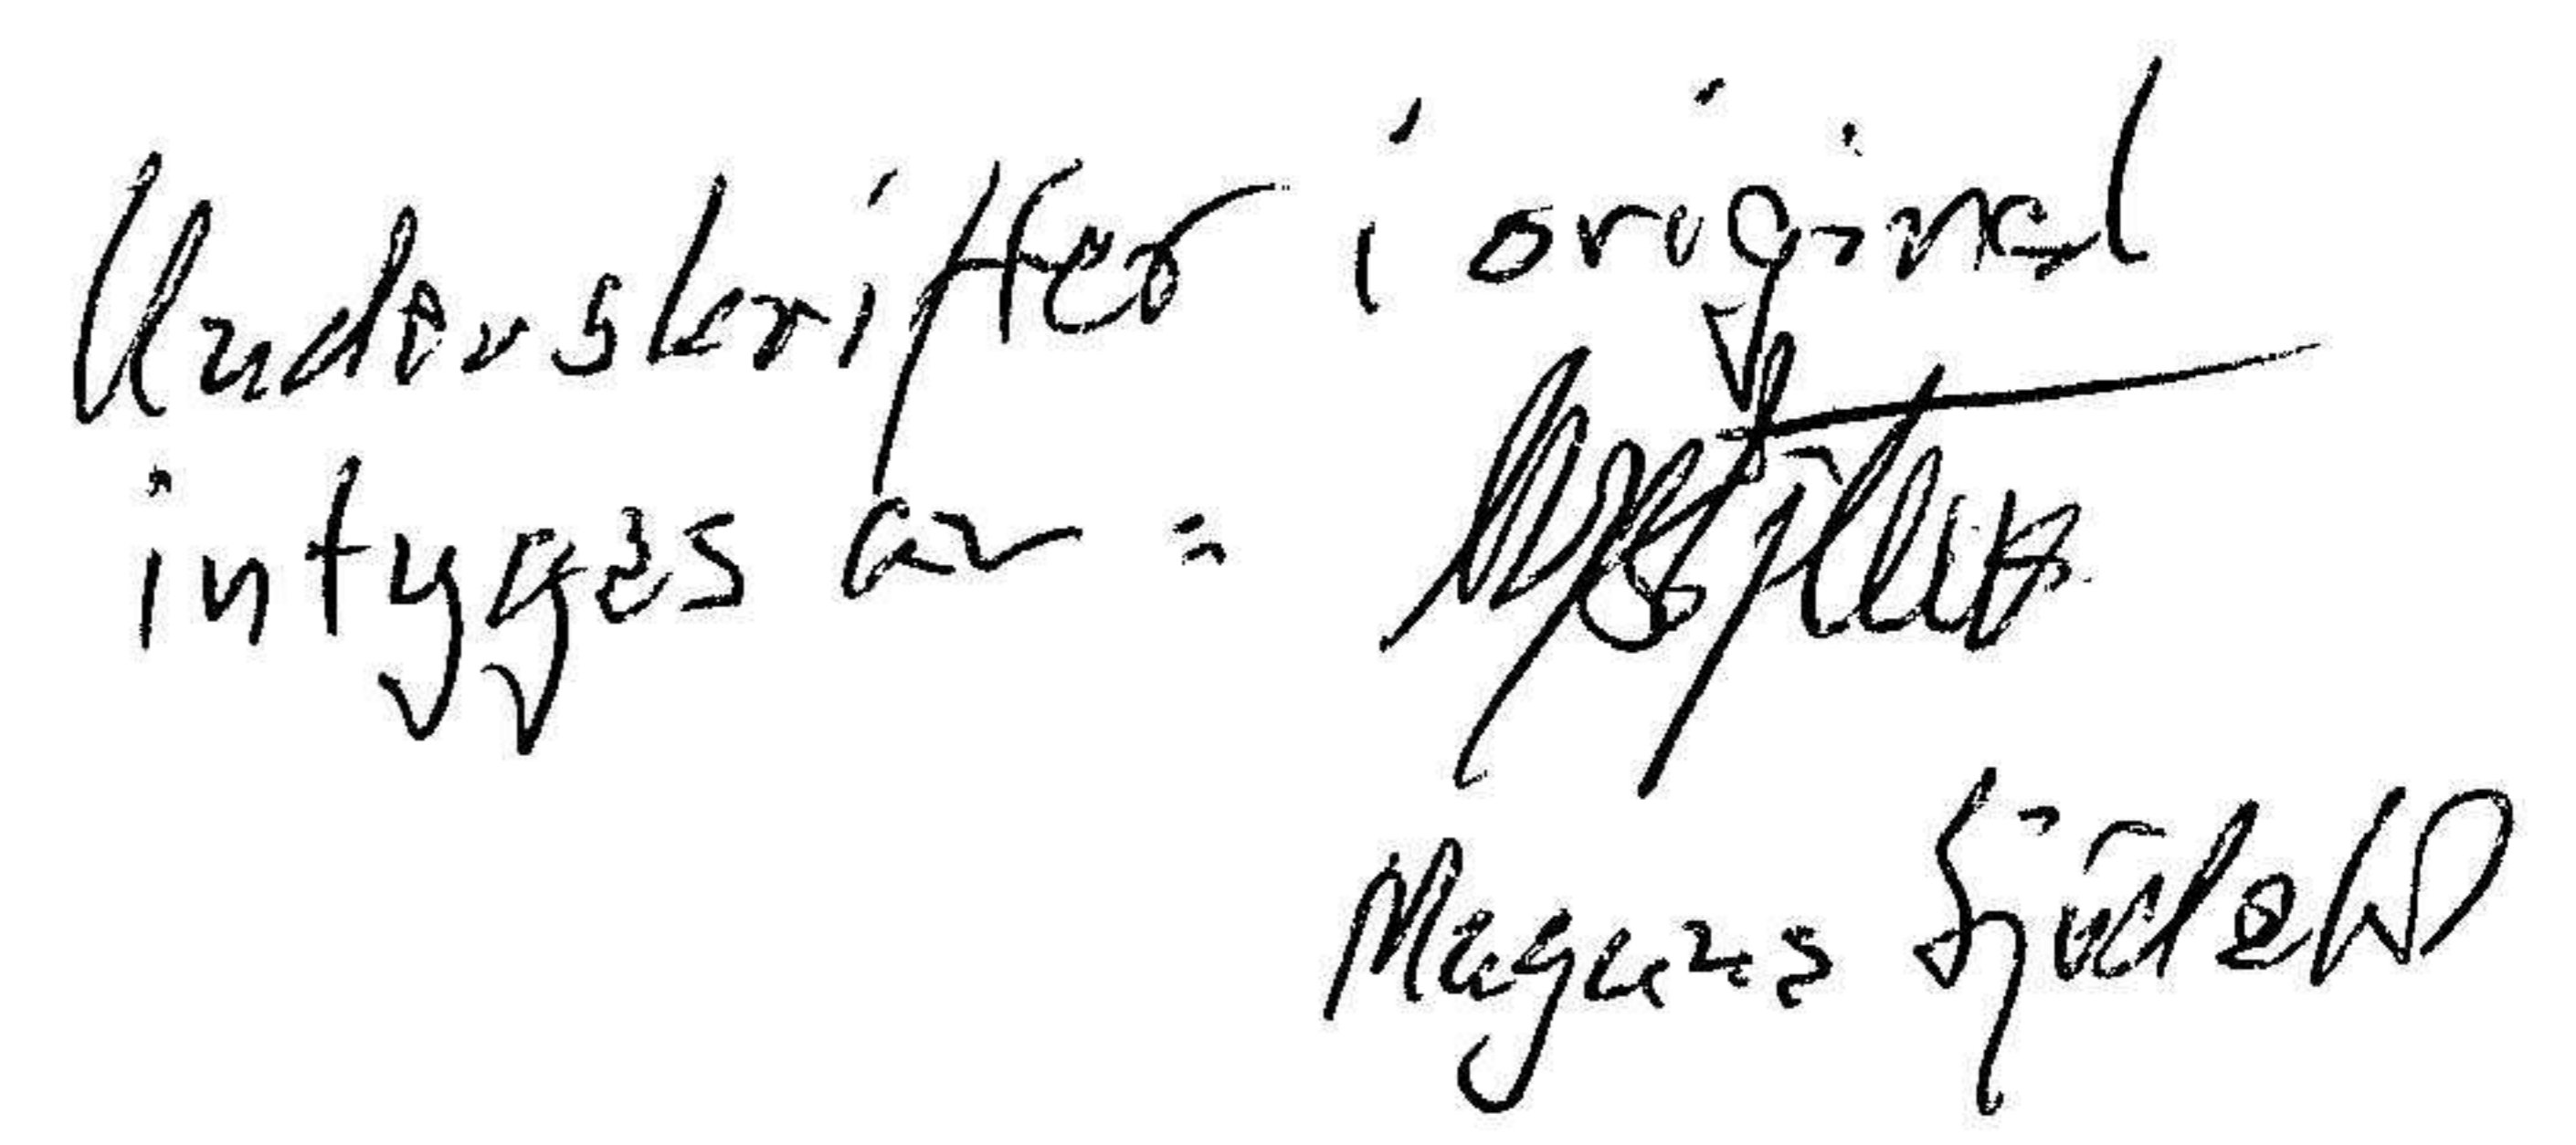 Underskrifter i original
intygas av:
Magnus